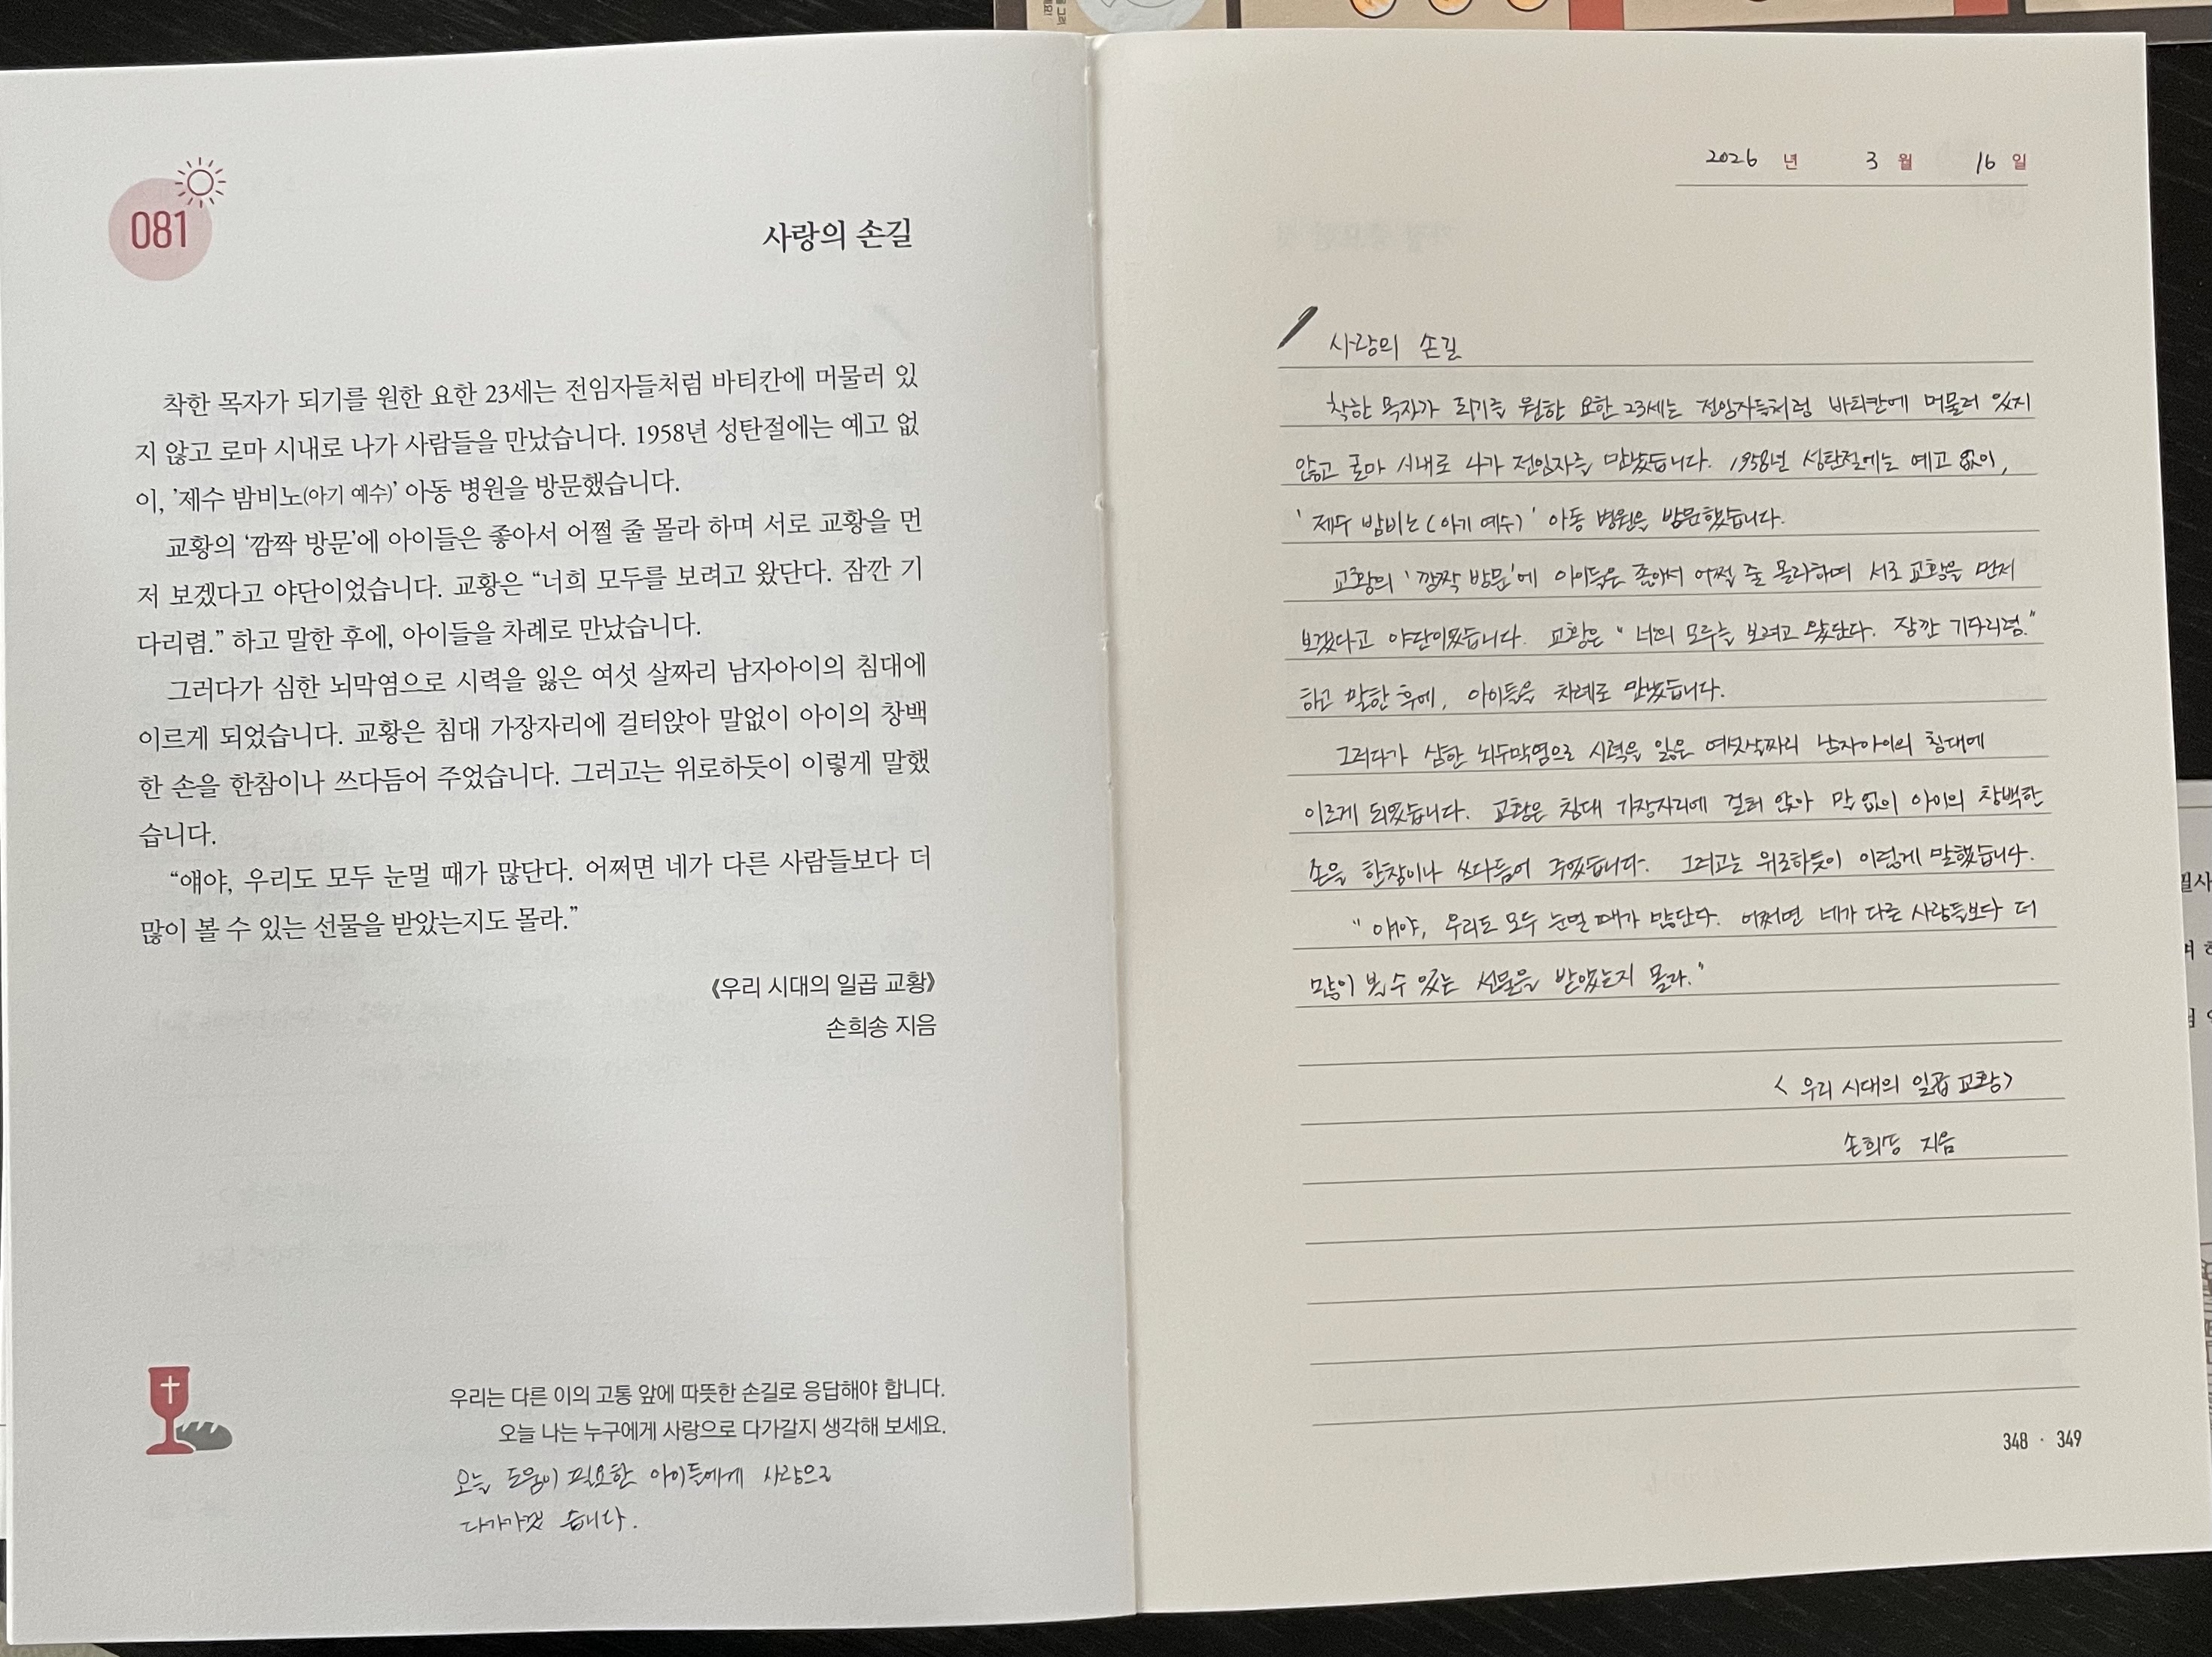 081
사랑의 손길
착한 목자가 되기를 원한 요한 23세는 전임자들처럼 바티칸에 머물러 있
지 않고 로마 시내로 나가 사람들을 만났습니다. 1958년 성탄절에는 예고 없
이, ’제수 밤비노(아기 예수)’ 아동 병원을 방문했습니다.
교황의 ‘깜짝 방문’에 아이들은 좋아서 어쩔 줄 몰라 하며 서로 교황을 먼
저 보겠다고 야단이었습니다. 교황은 “너희 모두를 보려고 왔단다. 잠깐 기
다리렴.” 하고 말한 후에, 아이들을 차례로 만났습니다.
그러다가 심한 뇌막염으로 시력을 잃은 여섯 살짜리 남자아이의 침대에
이르게 되었습니다. 교황은 침대 가장자리에 걸터앉아 말없이 아이의 창백
한 손을 한참이나 쓰다듬어 주었습니다. 그러고는 위로하듯이 이렇게 말했
습니다.
“얘야, 우리도 모두 눈멀 때가 많단다. 어쩌면 네가 다른 사람들보다 더
많이 볼 수 있는 선물을 받았는지도 몰라.”
《우리 시대의 일곱 교황》
손희송 지음
우리는 다른 이의 고통 앞에 따뜻한 손길로 응답해야 합니다.
오늘 나는 누구에게 사랑으로 다가갈지 생각해 보세요.
오늘 도움이 필요한 아이들에게 사랑으로
다가가겠 습니다.
2026 년 3 월 16 일
사랑의 손길
착한 목자가 되기를 원한 요한 23세는 전임자들처럼 바티칸에 머물러 있지
않고 로마 시내로 나가 전임자를 만났습니다. 1958년 성탄절에는 예고 없이,
' 제수 밤비노 (아기 예수) ' 아동 병원을 방문했습니다.
교황의 '깜짝 방문'에 아이들은 좋아서 어쩔 줄 몰라하며 서로 교황을 먼저
보겠다고 야단이었습니다. 교황은 " 너희 모두를 보려고 왔단다. 잠깐 기다리렴."
하고 말한 후에, 아이들을 차례로 만났습니다.
그러다가 심한 뇌수막염으로 시력을 잃은 여섯살짜리 남자아이의 침대에
이르게 되었습니다. 교황은 침대 가장자리에 걸터 앉아 말 없이 아이의 창백한
손을 한참이나 쓰다듬어 주었습니다. 그러고는 위로하듯이 이렇게 말했습니다.
" 얘야, 우리도 모두 눈멀 때가 많단다. 어쩌면 네가 다른 사람들보다 더
많이 볼 수 있는 선물을 받았는지 몰라."
< 우리 시대의 일곱 교황>
손희송 지음
348 · 349